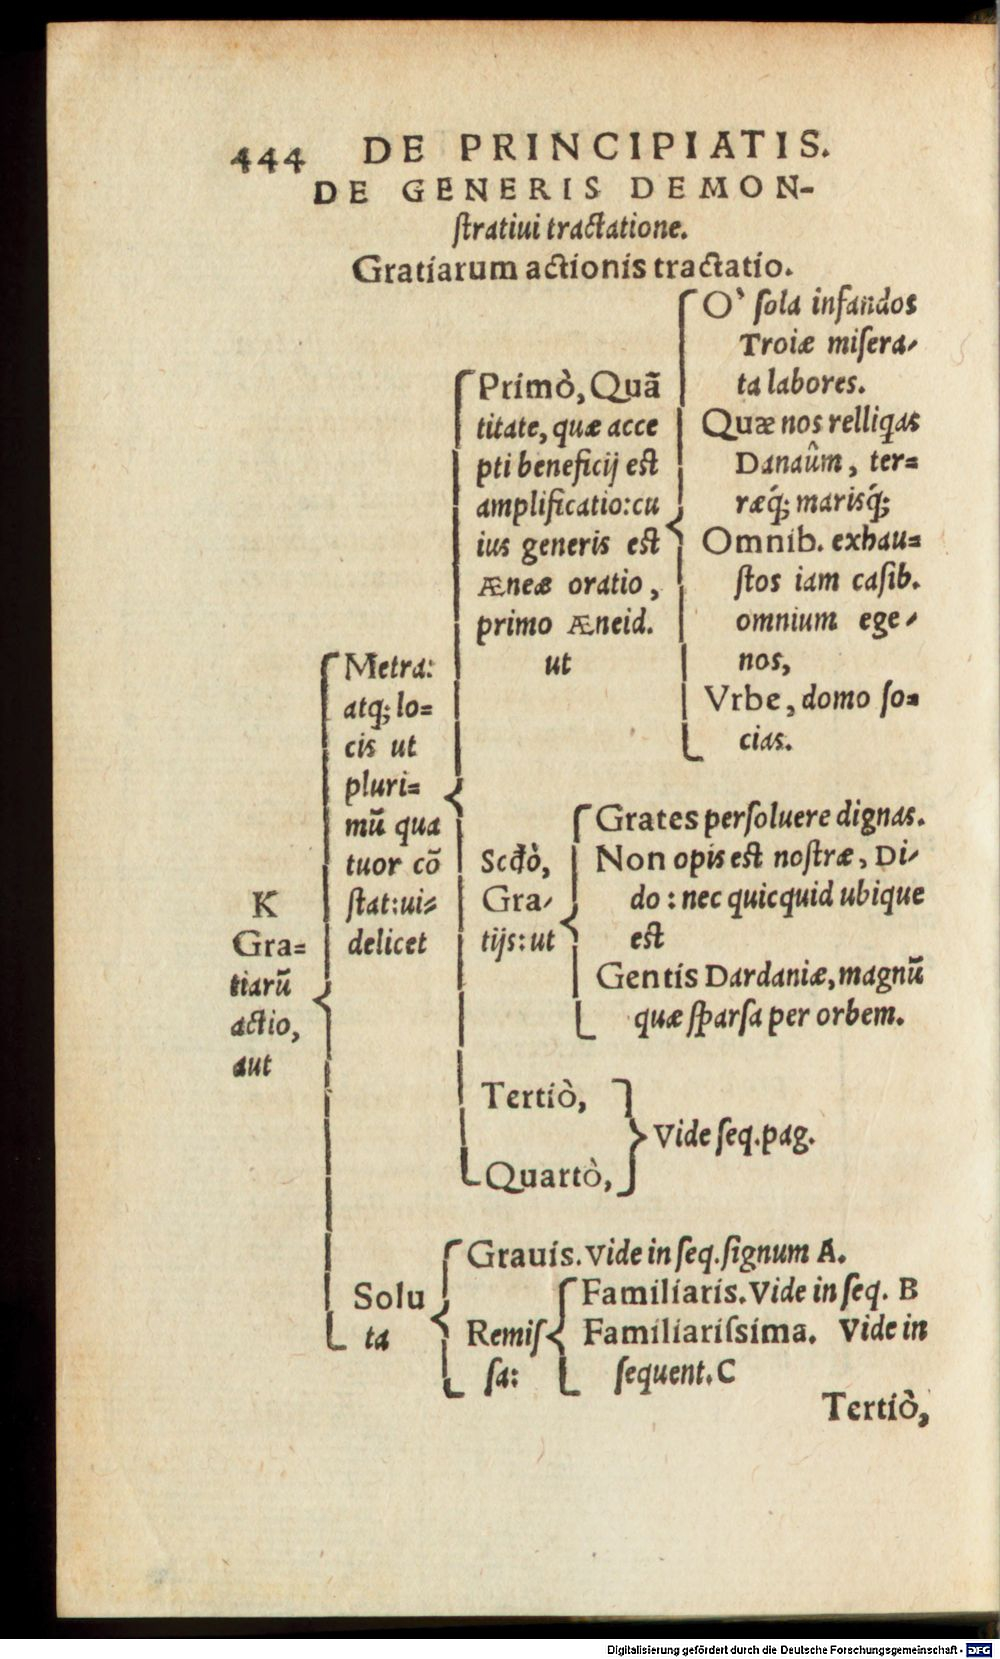 444 DE PRINCIPIATIS.
DE GENERIS DEMON-
ſtratiui tractatione.
Gratiarum actionis tractatio.
K
Gra=
tiarū
actio,
aut
Metra:
atq; lo=
cis ut
pluri=
mū qua
tuor cō
ſtat: ui=
delicet
Primò, Quā
titate, quæ acce
pti beneficij est
amplificatio: cu
ius generis est
Æneæ oratio,
primo Æneid.
ut
O' ſola infandos
Troiæ miſera-
ta labores.
Quæ nos relliq̃as
Danaûm, ter=
ræq́; marisq́;
Omnib. exhau=
ſtos iam caſib.
omnium ege-
nos,
Vrbe, domo ſo=
cias.
Scđò,
Gra-
tijs: ut
Grates perſoluere dignas.
Non opis est noſtræ, Di-
do: nec quicquid ubique
est
Gentis Dardaniæ, magnū
quæ ſparſa per orbem.
Tertiò,
Quartò,
Vide ſeq. pag.
Solu
ta
Grauis. Vide in ſeq. ſignum A.
Remiſ
ſa:
Familiaris. Vide in ſeq. B
Familiariſsima. Vide in
ſequent. C
Tertiò,
Digitalisierung gefördert durch die Deutsche Forschungsgemeinschaft - DFG